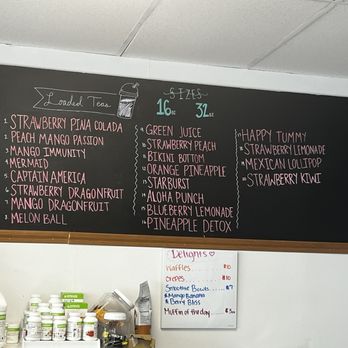 Loaded Teas
SIZES
16oz 32oz
1. STRAWBERRY PINA COLADA
2. PEACH MANGO PASSION
3. MANGO IMMUNITY
4. MERMAID
5. CAPTAIN AMERICA
6. STRAWBERRY DRAGONFRUIT
7. MANGO DRAGONFRUIT
8. MELON BALL
9. GREEN JUICE
10. STRAWBERRY PEACH
11. BIKINI BOTTOM
12. ORANGE PINEAPPLE
13. STARBURST
14. ALOHA PUNCH
15. BLUEBERRY LEMONADE
16. PINEAPPLE DETOX
17. HAPPY TUMMY
18. STRAWBERRY LEMONADE
19. MEXICAN LOLLIPOP
20. STRAWBERRY KIWI
Delights
Waffles $10
Crepes $10
Smoothie Bowls $7
Mango Banana
Berry Bliss
Muffin of the day